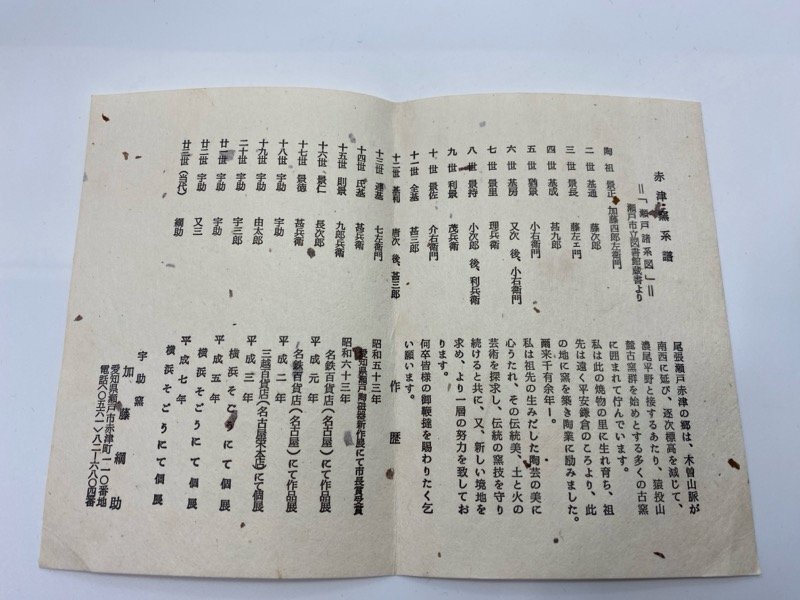 赤津窯系譜
=「瀬戸諸系図」=
瀬戸市立図書館蔵書より
陶祖 景正 加藤四郎左衛門
二世 基通 藤次郎
三世 景長 藤左ェ門
四世 基成 甚九郎
五世 猶景 小右衛門
六世 基房 又次 後、小右衛門
七世 景里 理兵衛
八世 景持 小次郎 後、利兵衛
九世 利景 茂兵衛
十世 景佐 介右衛門
十一世 全基 甚三郎
十二世 基利 唐次 後、甚三郎
十三世 連基 七左衛門
十四世 氏基 甚兵衛
十五世 則景 九郎兵衛
十六世 景仁 長次郎
十七世 景徳 甚兵衛
十八世 宇助 宇助
十九世 宇助 由太郎
二十世 宇助 宇三郎
廿一世 宇助 宇助
廿二世 宇助 又三
廿三世(当代) 綱助
尾張瀬戸赤津の郷は、木曽山脈が
南西に延び、逐次標高を減じて、
濃尾平野と接するあたり、猿投山
麓古窯群を始めとする多くの古窯
に囲まれて佇んでいます。
私は此の焼物の里に生れ育ち、祖
先は遠く平安鎌倉のころより、此
の地に窯を築き陶業に励みました。
爾来千有余年ー。
私は祖先の生みだした陶芸の美に
心うたれ、その伝統美、土と火の
芸術を探求し、伝統の窯技を守り
続けると共に、又、新しい境地を
求め、より一層の努力を致してお
ります。
何卒皆様の御鞭撻を賜わりたく乞
い願います。
作歴
昭和五十三年
愛知県瀬戸陶磁器新作展にて市長賞受賞
昭和六十三年
名鉄百貨店(名古屋)にて作品展
平成元年
名鉄百貨店(名古屋)にて作品展
平成二年
三越百貨店(名古屋栄本店)にて個展
平成三年
横浜そごうにて個展
平成五年
横浜そごうにて個展
平成七年
横浜そごうにて個展
宇助窯
加藤綱助
愛知県瀬戸市赤津町一一〇番地
電話〈〇五六一〉八二ー六八〇四番